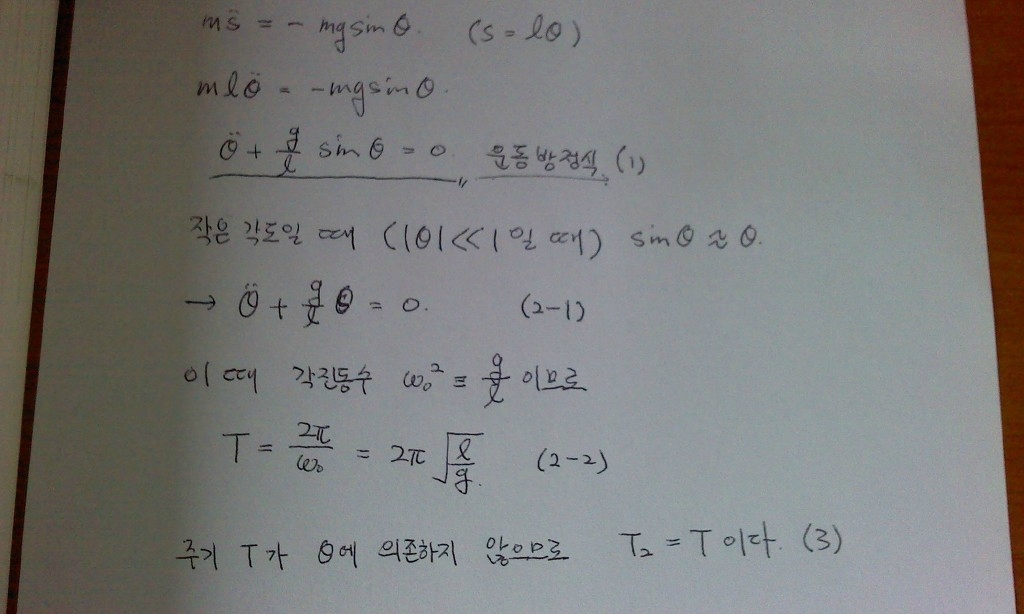 ms̈ = - mg sinθ. (s = lθ)
mlθ̈ = -mg sinθ.
θ̈ + g/l sinθ = 0. 운동방정식 (1)
작은 각도일 때 (|θ|<<1일 때) sinθ ≈ θ.
→ θ̈ + g/l θ = 0. (2-1)
이 때 각진동수 ω₀² ≡ g/l 이므로
T = 2π/ω₀ = 2π √(l/g). (2-2)
주기 T가 θ에 의존하지 않으므로 T₂ = T 이다. (3)